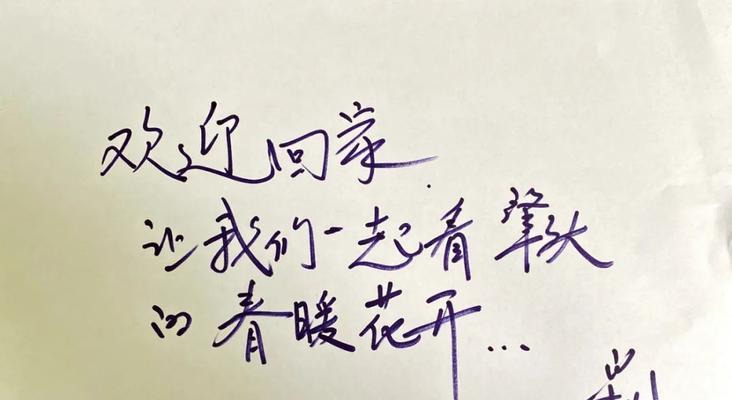 欢迎回家.
让我们一起看肇大
的春暖花开...